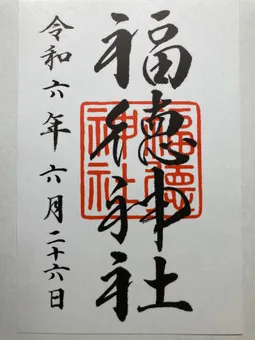 福徳神社
令和六年 六月二十六日
福徳
神社